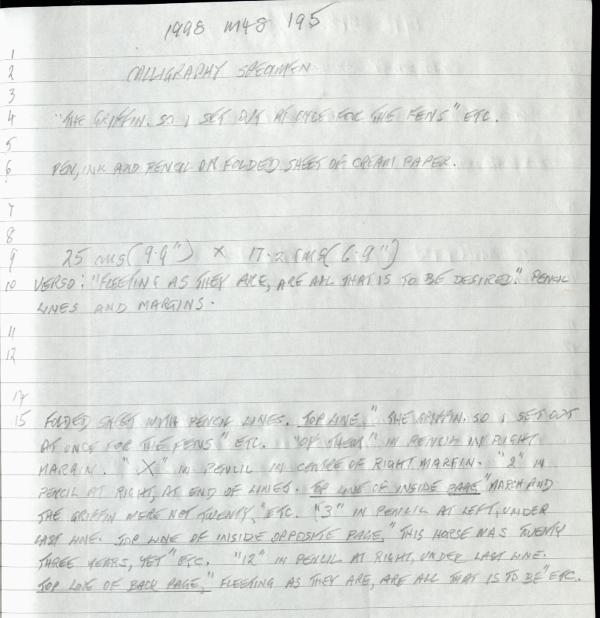 1998 M48 195
1
2 CALLIGRAPHY SPECIMEN
3
4 "THE GRIFFIN. SO I SET OUT AT ONCE FOR THE FENS" ETC.
5
6 PEN, INK AND PENCIL ON FOLDED SHEET OF CREAM PAPER.
7
8
9 25 cms (9.9") x 17.2 cms (6.9")
10 VERSO: "FLEETING AS THEY ARE, ARE ALL THAT IS TO BE DESIRED." PENCIL
LINES AND MARGINS.
11
12
15 FOLDED SHEET WITH PENCIL LINES. TOP LINE, "THE GRIFFIN. SO I SET OUT
AT ONCE FOR THE FENS" ETC. "OF THEM" IN PENCIL IN RIGHT
MARGIN. "X" IN PENCIL IN CENTRE OF RIGHT MARGIN. "2" IN
PENCIL AT RIGHT, AT END OF LINES. TOP LINE OF INSIDE PAGE "MARCH AND
THE GRIFFIN WERE NOT TWENTY," ETC. "3" IN PENCIL AT LEFT, UNDER
LAST LINE. TOP LINE OF INSIDE OPPOSITE PAGE, "THIS HORSE WAS TWENTY
THREE YEARS, YET" ETC. "12" IN PENCIL AT RIGHT, UNDER LAST LINE.
TOP LINE OF BACK PAGE, "FLEETING AS THEY ARE, ARE ALL THAT IS TO BE" ETC.